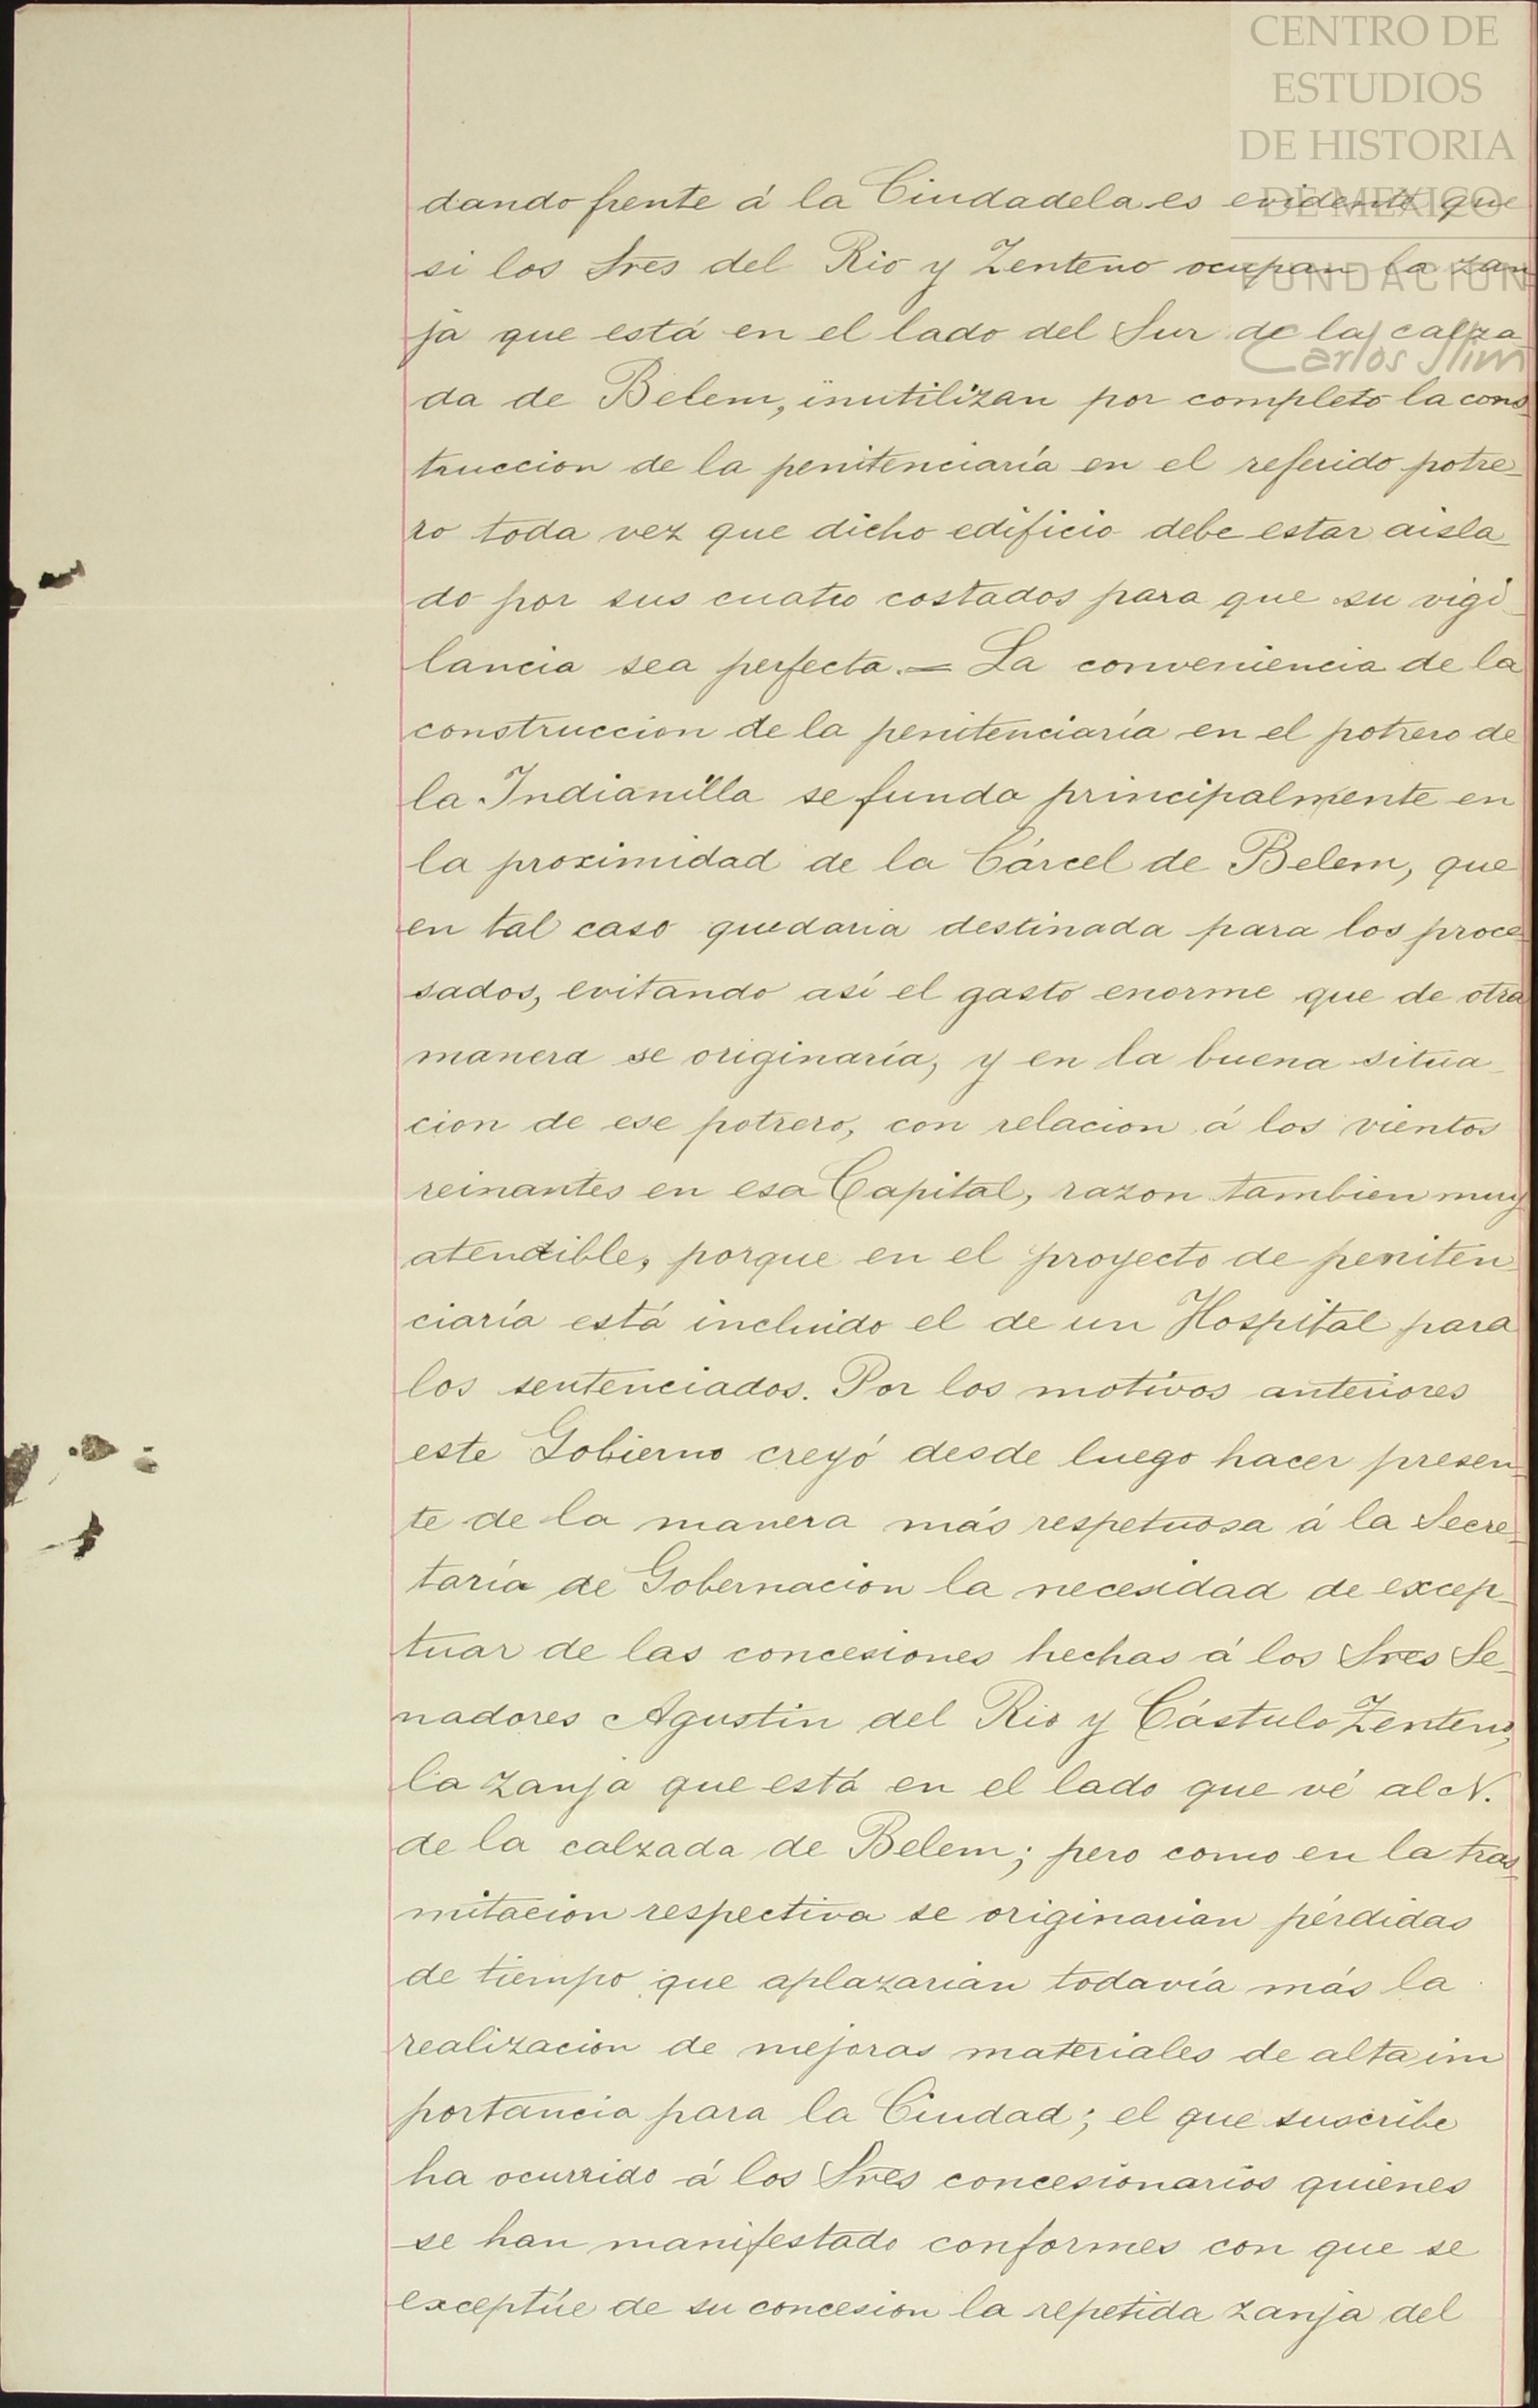 CENTRO DE
ESTUDIOS
DE HISTORIA
DE MEXICO
FUNDACION
Carlos Slim
dando frente á la Ciudadela es evidente que
si los Sres del Rio y Zenteno ocupan la zan
ja que está en el lado del Sur de la calza
da de Belem, inutilizan por completo la cons
truccion de la penitenciaría en el referido potre-
ro toda vez que dicho edificio debe estar aisla-
do por sus cuatro costados para que su vigi-
lancia sea perfecta.= La conveniencia de la
construccion de la penitenciaría en el potrero de
la Indianilla se funda principalmente en
la proximidad de la Cárcel de Belem, que
en tal caso quedaria destinada para los proce
sados, evitando así el gasto enorme que de otra
manera se originaría, y en la buena situa-
cion de ese potrero, con relacion á los vientos
reinantes en esa Capital, razon tambien muy
atendible, porque en el proyecto de peniten-
ciaría está incluido el de un Hospital para
los sentenciados. Por los motivos anteriores
este Gobierno creyó desde luego hacer presen-
te de la manera más respetuosa á la Secre-
taría de Gobernacion la necesidad de excep-
tuar de las concesiones hechas á los Sres Se-
nadores Agustin del Rio y Cástulo Zenteno,
la zanja que está en el lado que vé al N.
de la calzada de Belem; pero como en la tras-
mitacion respectiva se originarian pérdidas
de tiempo que aplazarian todavía más la
realizacion de mejoras materiales de alta im
portancia para la Ciudad; el que suscribe
ha ocurrido á los Sres concesionarios quienes
se han manifestado conformes con que se
exceptúe de su concesion la repetida zanja del